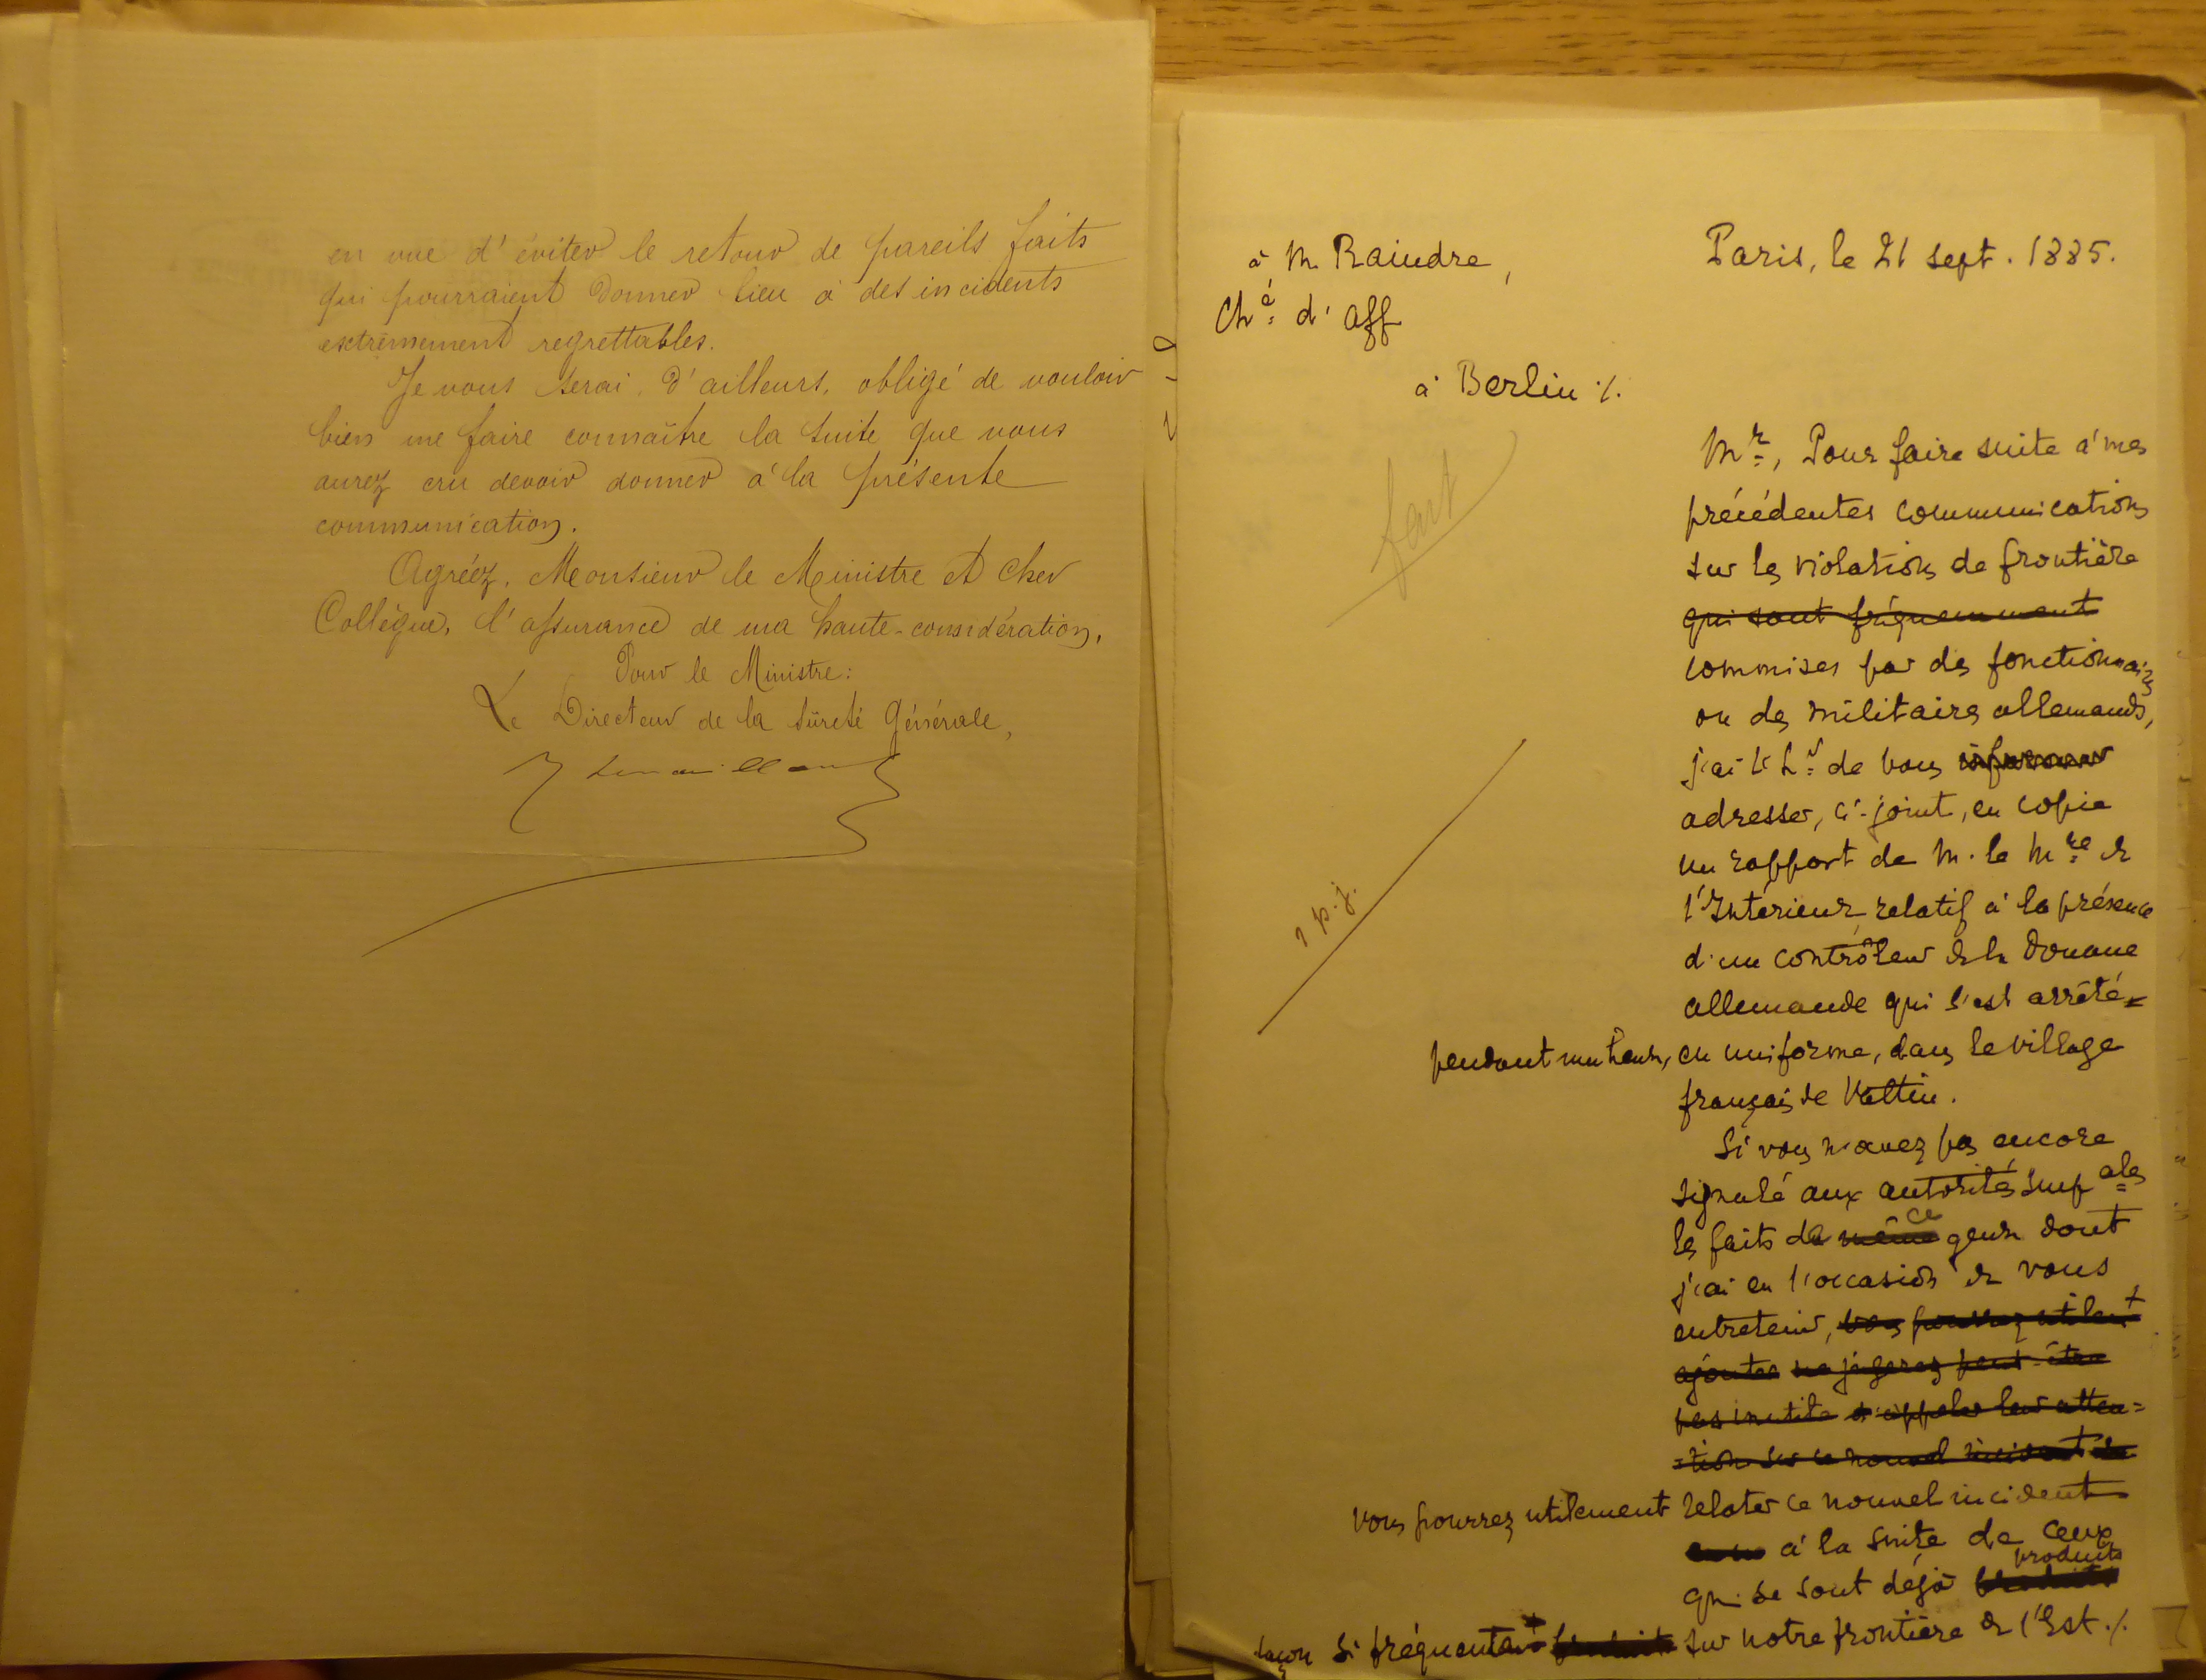 en vue d'éviter le retour de pareils faits
qui pourraient donner lieu à des incidents
extrêmement regrettables.
Je vous serai, d'ailleurs, obligé de vouloir
bien me faire connaître la suite que vous
aurez cru devoir donner à la présente
communication.
Agréez, Monsieur le Ministre et cher
Collègue, l'assurance de ma haute considération.
Pour le Ministre:
Le Directeur de la Sûreté Générale,
à M. Raindre,
Ché d'aff
à Berlin ./.
Paris, le 21 sept. 1885.
fait
1 p.j.
Mr, Pour faire suite à mes
précédentes communications
sur les violations de frontière
qui sont fréquemment
commises par des fonctionnaires
ou des militaires allemands,
j'ai l'hr de vous informer
adresser, ci-joint, en copie
un rapport de M. le Mre de
l'Intérieur relatif à la présence
d'un contrôleur de la Douane
allemande qui s'est arrêté
pendant une heure, en uniforme, dans le village
français de Valtin.
Si vous n'avez pas encore
signalé aux autorités impales
les faits de même ce genre dont
j'ai eu l'occasion de vous
entretenir, vous pourrez utilemt
ajouter ne jugerez peut-être
pas inutile d'appeler leur atten=
=tion sur ce nouvel incident
vous pourrez utilement relater ce nouvel incident
à la suite de ceux
qui se sont déjà produits produits
façon si fréquente produits sur notre frontière de l'Est ./.